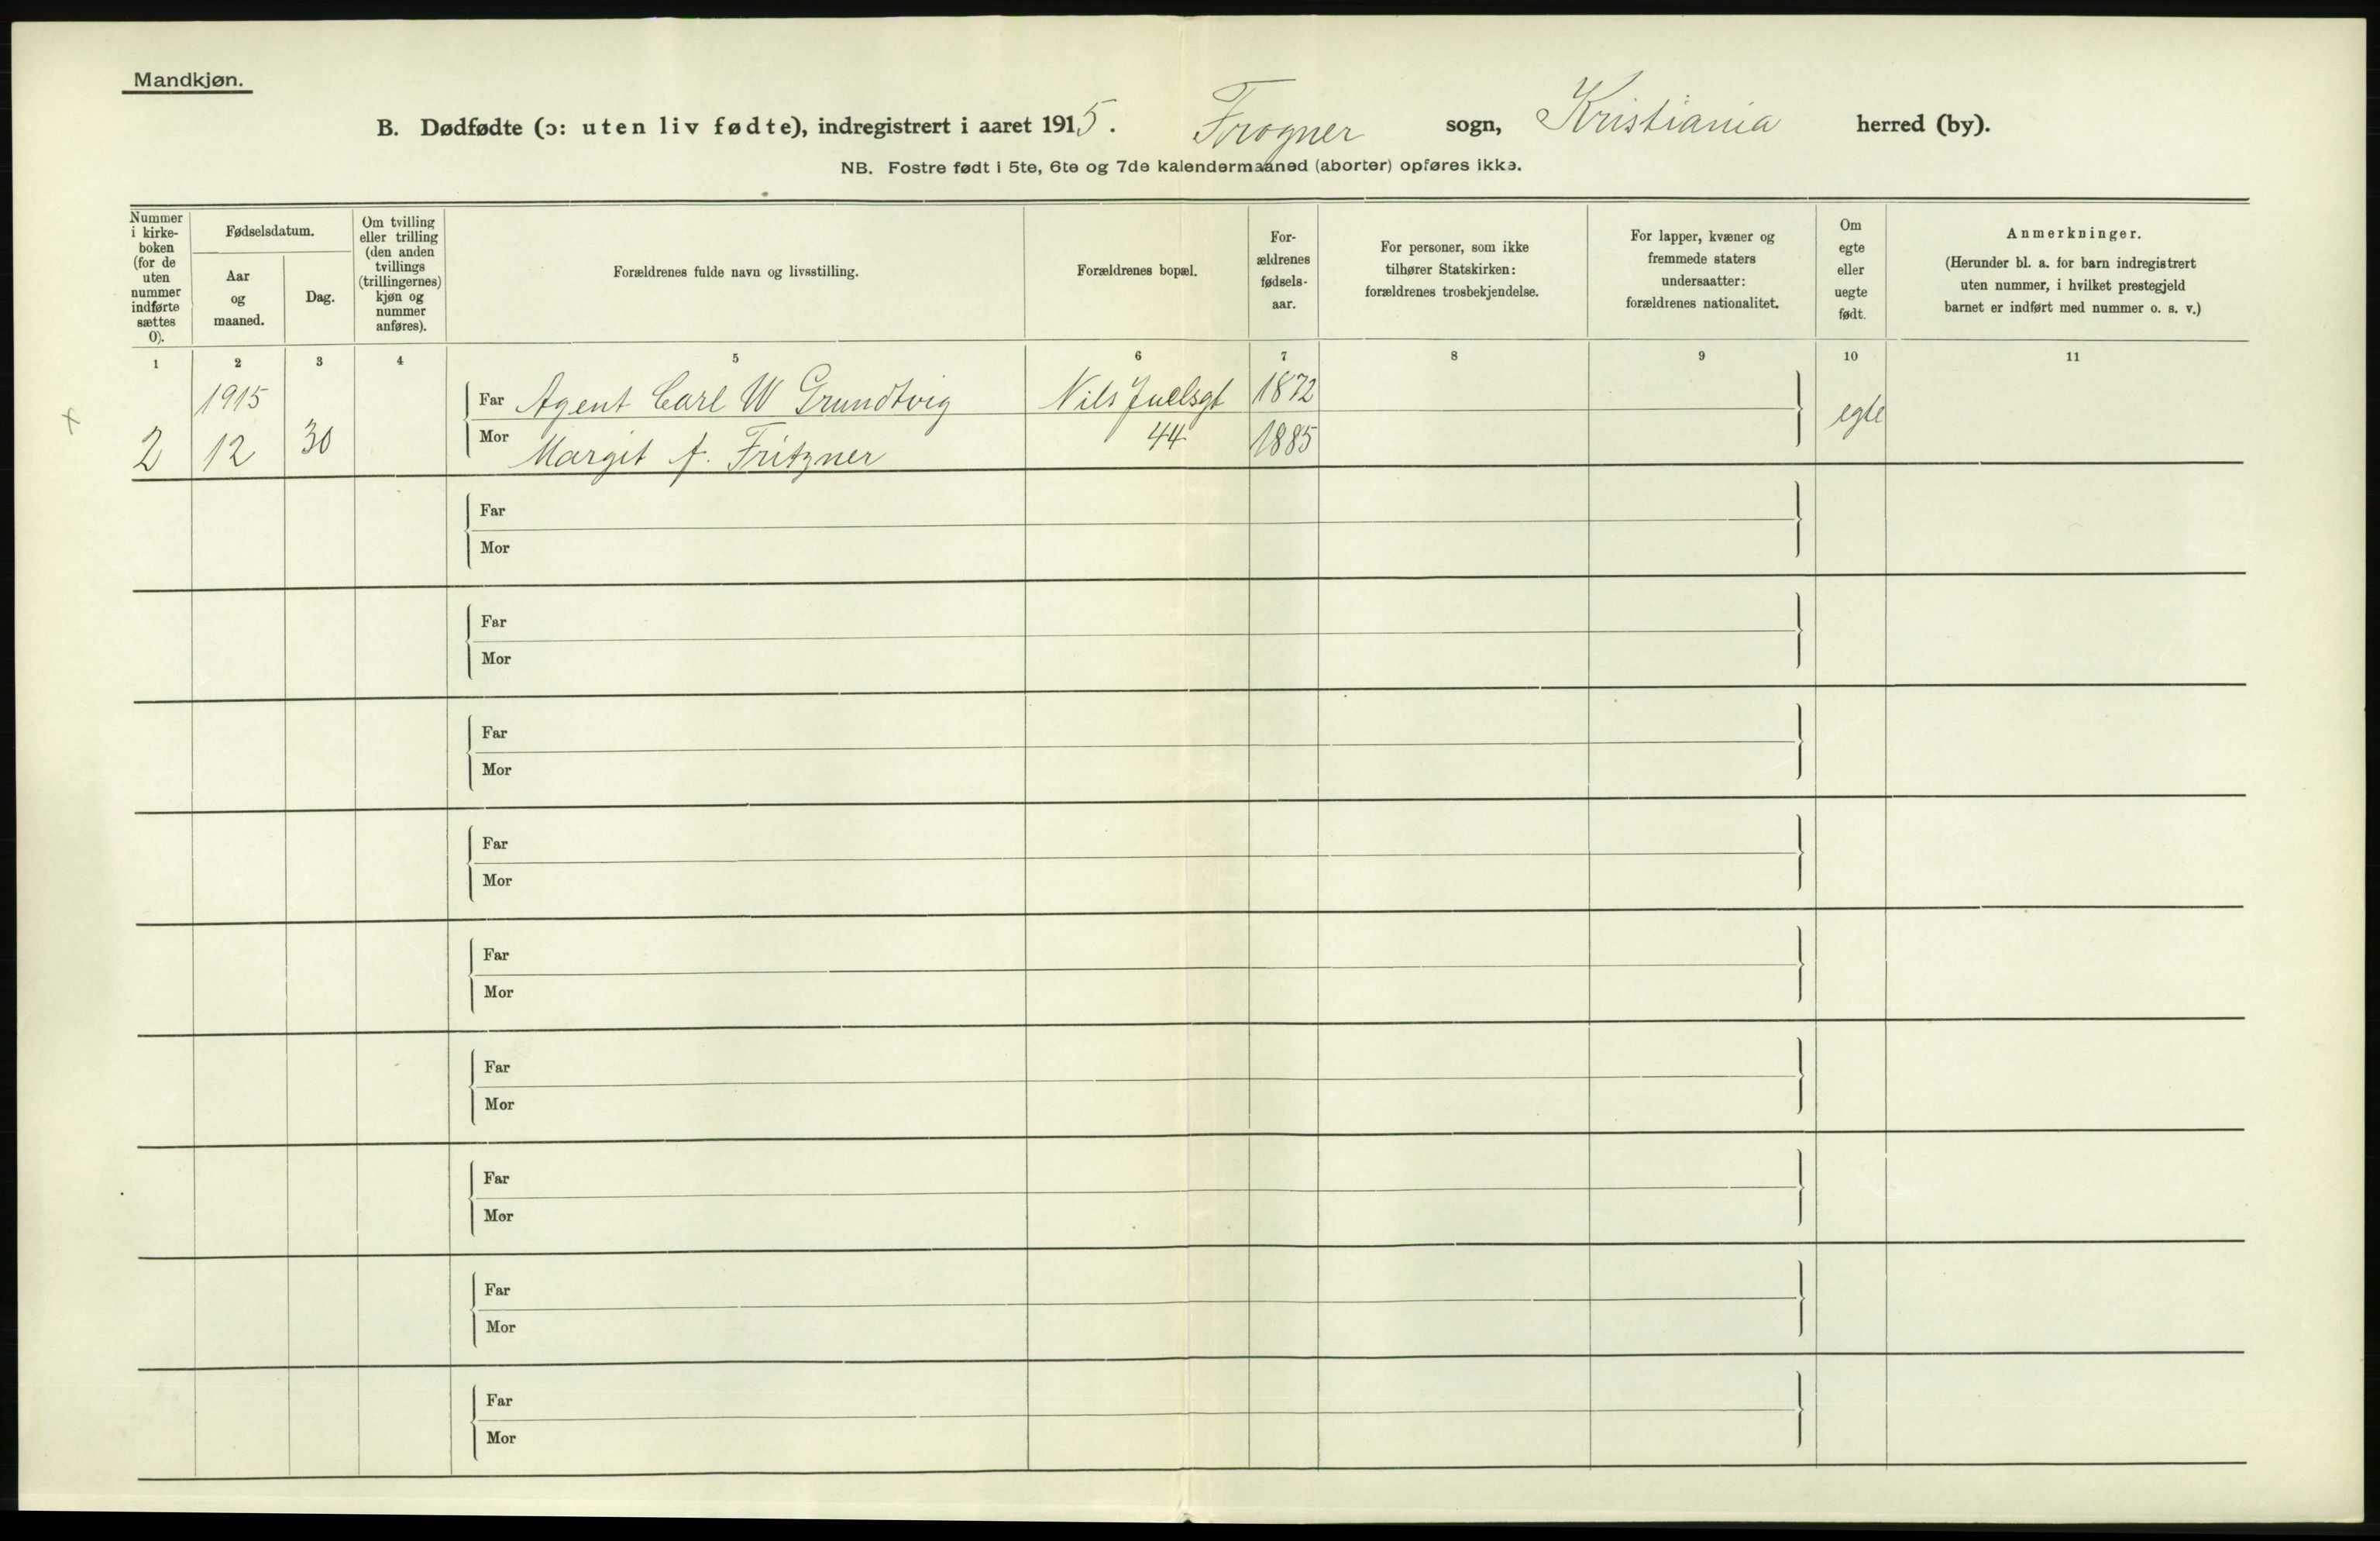 Mandkjøn.
B. Dødfødte (ɔ: uten liv fødte), indregistrert i aaret 1915. Frogner sogn, Kristiania herred (by).
NB. Fostre født i 5te, 6te og 7de kalendermaaned (aborter) opføres ikke.
Nummer
i kirke-
boken
(for de
uten
nummer
indførte
sættes
0).
Fødselsdatum.
Aar
og
maaned.
Dag.
Om tvilling
eller trilling
(den anden
tvillings
(trillingernes)
kjøn og
nummer
anføres).
Forældrenes fulde navn og livsstilling.
Forældrenes bopæl.
For-
ældrenes
fødsels-
aar.
For personer, som ikke
tilhører Statskirken:
forældrenes trosbekjendelse.
For lapper, kvæner og
fremmede staters
undersaatter:
forældrenes nationalitet.
Om
egte
eller
uegte
født.
Anmerkninger.
(Herunder bl. a. for barn indregistrert
uten nummer, i hvilket prestegjeld
barnet er indført med nummer o. s. v.)
1 2 3 4 5 6 7 8 9 10 11
x 1915 Far Agent Carl W Grundtvig Nils Juelsgt 1872 egte
2 12 30 Mor Margit f. Fritzner 44 1885
Far
Mor
Far
Mor
Far
Mor
Far
Mor
Far
Mor
Far
Mor
Far
Mor
Far
Mor
Far
Mor